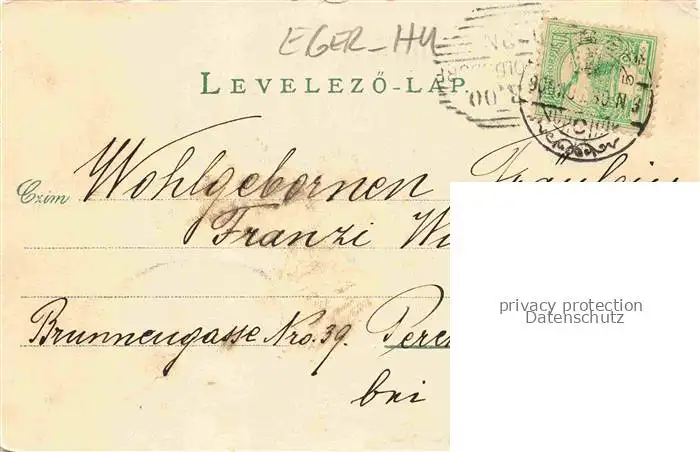 EGER-HU
LEVELEZŐ-LAP
Czim
Wohlgebornen Fräulein
Franzi
Brunnengasse Nro. 39.
bei
privacy protection
Datenschutz